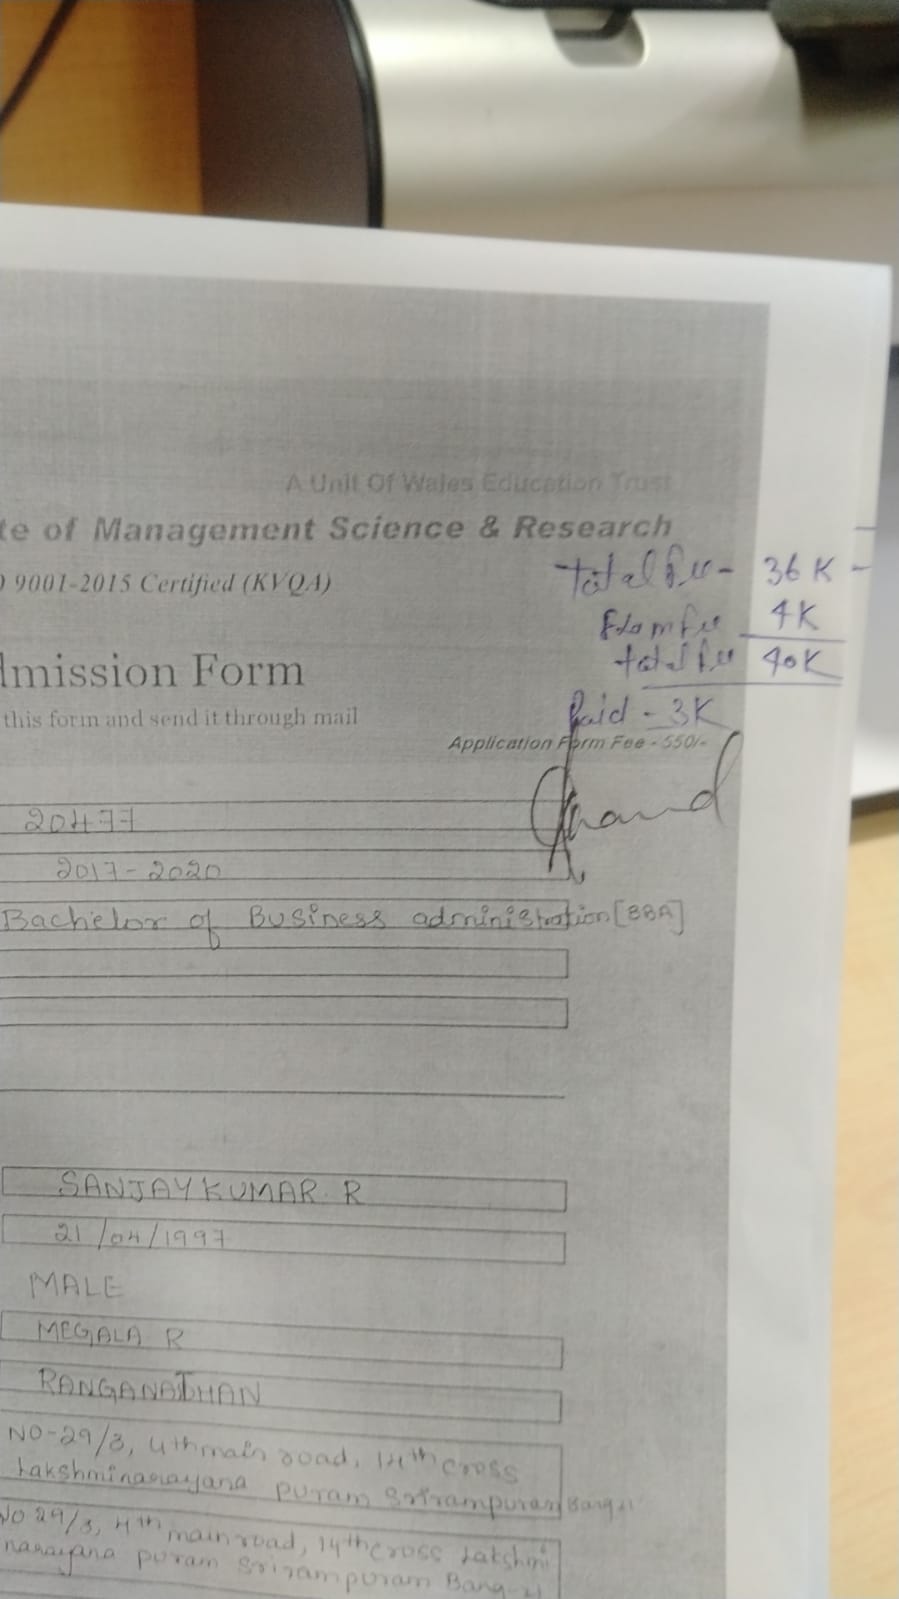 A Unit Of Wales Education Trust
te of Management Science & Research
9001-2015 Certified (KVQA)
Total fee - 36K -
Exam fee 4K
total fee 40K
dmission Form
this form and send it through mail
Paid - 3K
Application Form Fee - 550/-
20477
2017-2020
Bachelor of Business administration [BBA]
SANJAYKUMAR R
21/04/1997
MALE
MEGALA R
RANGANATHAN
NO-29/3, 4th main road, 14th cross
Lakshminarayana puram Srirampuram Bang-21
No 29/3, 4th main road, 14th cross Lakshmi
narayana puram Srirampuram Bang-21